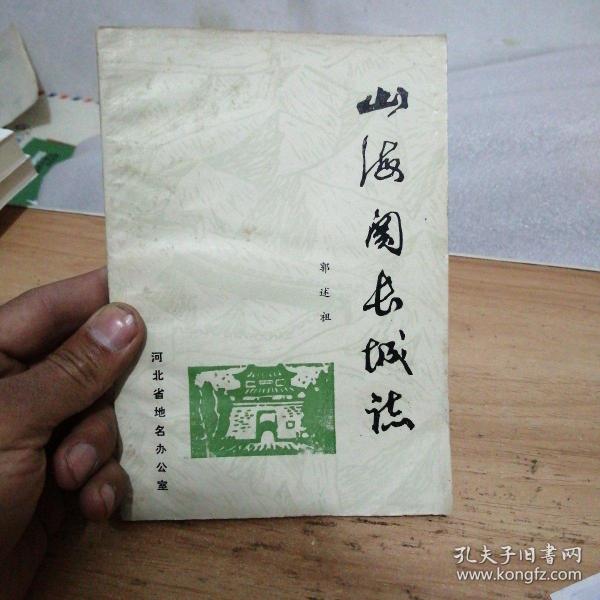 山海関长城誌
郭述祖
河北省地名办公室
孔夫子旧书网
www.kongfz.com